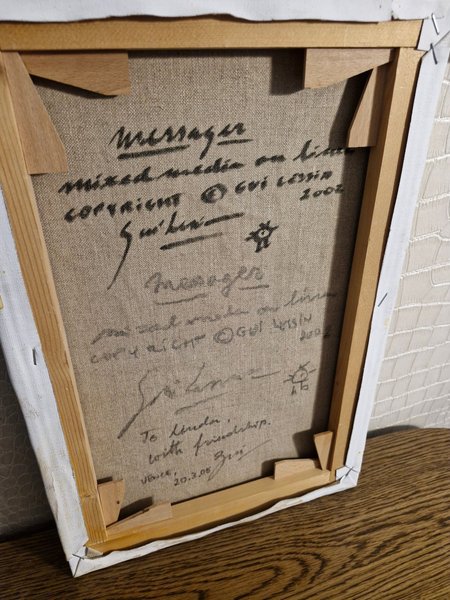 Messager
mixed media on linen
COPYRIGHT © GUI LESSIN
2002
Messager
mixed media on linen
COPYRIGHT © GUI LESSIN
2002
To Linda,
with friendship.
Vence,